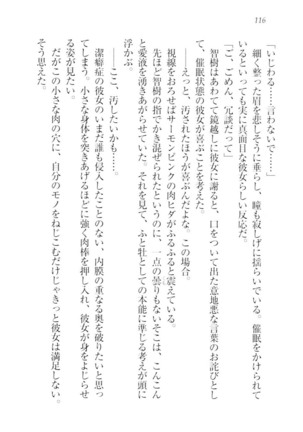 116
「いじわる……言わないで……」
細く整った眉を悲しそうに垂らし、瞳も寂しげに揺らいでいる。催眠をかけられて
いるといっても実に真面目な彼女らしい反応だ。
「ご、ごめん。冗談だって」
智樹はあわてて鏡越しに彼女に謝ると、口をついて出た意地悪な言葉のお詫びとし
て、催眠状態の彼女が喜ぶことを考えた。
――えっと、汚されたほうが喜ぶんだよな。この場合。
視線をおろせばサーモンピンクの肉ヒダがふるふると震えている。
先ほど智樹の指でかき混ぜられたというのに、一点の曇りもないそこは、こんこん
と愛液を湧きあがらせていた。それを見て、ふと牡としての本能に準じる考えが頭に
浮かぶ。
――ここ、汚したいかも……。
潔癖症の彼女のいまだ誰も侵入したことのない、内膜の重なる奥を破りたいと思っ
てしまう。小さな身体を突きあげるほどに強く肉棒を押し入れ、彼女が身をよじらせ
る姿が見たい。
だがこの小さな肉の穴に、自分のモノをねじこむだけじゃきっと彼女は満足しない。
そう思えた。